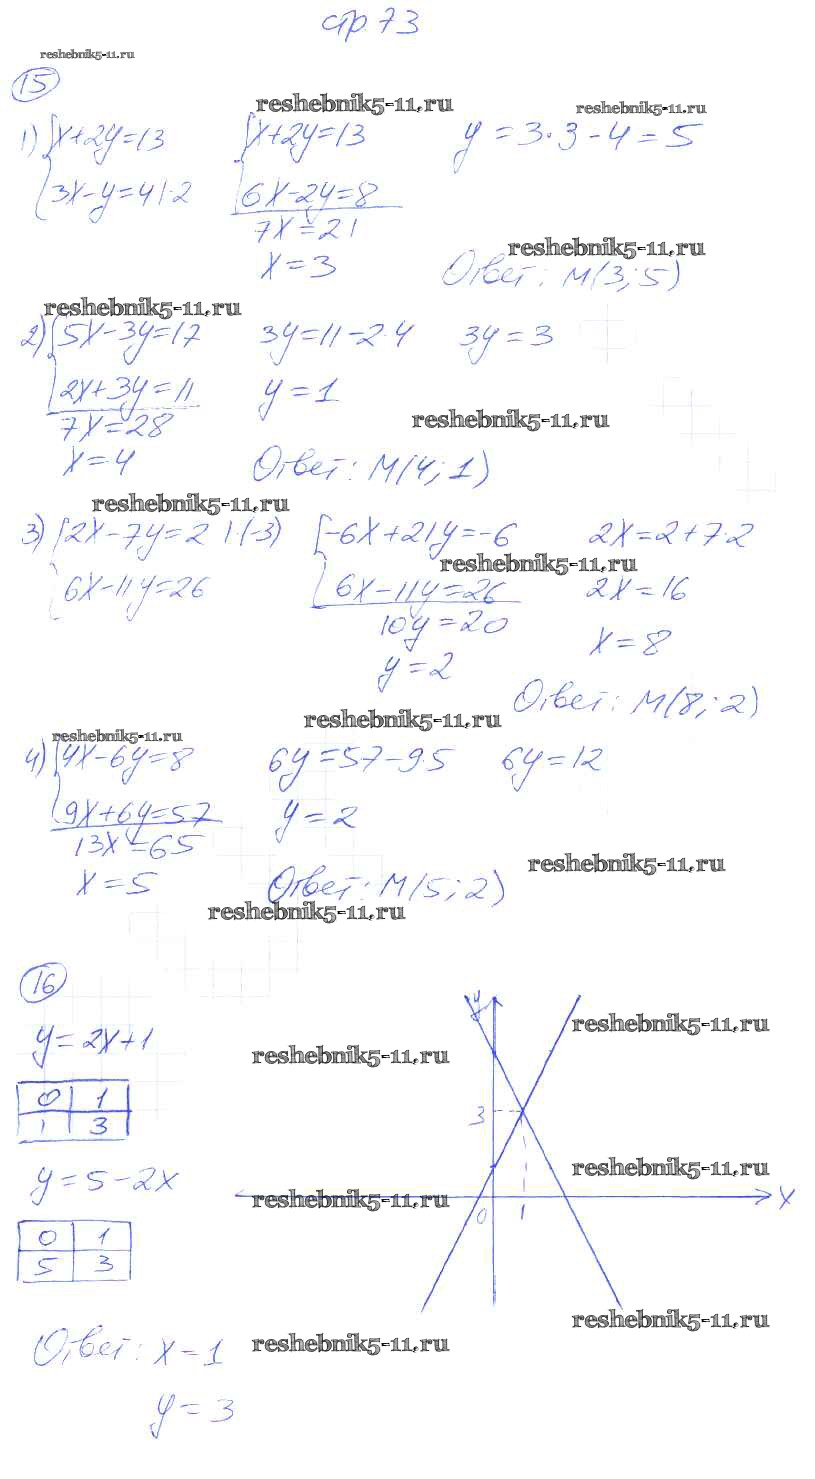 стр. 73
reshebnik5-11.ru
15
reshebnik5-11.ru reshebnik5-11.ru
1) {x+2y=13 {x+2y=13 y=3·3-4=5
3x-y=4 |·2 6x-2y=8
7x=21
reshebnik5-11.ru
x=3 Ответ: M(3;5)
reshebnik5-11.ru
2) {5x-3y=17 3y=11-2·4 3y=3
2x+3y=11 y=1
reshebnik5-11.ru
7x=28
x=4 Ответ: M(4;1)
reshebnik5-11.ru
3) {2x-7y=2 |·(-3) {-6x+21y=-6 2x=2+7·2
reshebnik5-11.ru
6x-11y=26 6x-11y=26 2x=16
10y=20
y=2 x=8
Ответ: M(8;2)
reshebnik5-11.ru
reshebnik5-11.ru
4) {4x-6y=8 6y=57-9·5 6y=12
9x+6y=57 y=2
13x=65
reshebnik5-11.ru
x=5 Ответ: M(5;2)
reshebnik5-11.ru
16
y
reshebnik5-11.ru
y=2x+1
reshebnik5-11.ru
0 1
1 3
3
reshebnik5-11.ru
y=5-2x
reshebnik5-11.ru
x
0 1
0 1
5 3
reshebnik5-11.ru
Ответ: x=1
reshebnik5-11.ru
y=3